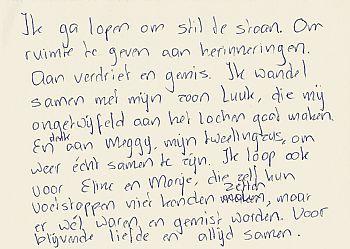 Ik ga lopen om stil te staan. Om
ruimte te geven aan herinneringen.
Aan verdriet en gemis. Ik wandel
samen met mijn zoon Luuk, die mij
ongetwijfeld aan het lachen gaat maken.
En denk aan Meggy, mijn tweelingzus, om
weer écht samen te zijn. Ik loop ook
voor Eline en Marije, die zelf hun
voetstappen niet konden maken zetten, maar
er wél waren en gemist worden. Voor
blijvende liefde en altijd samen.